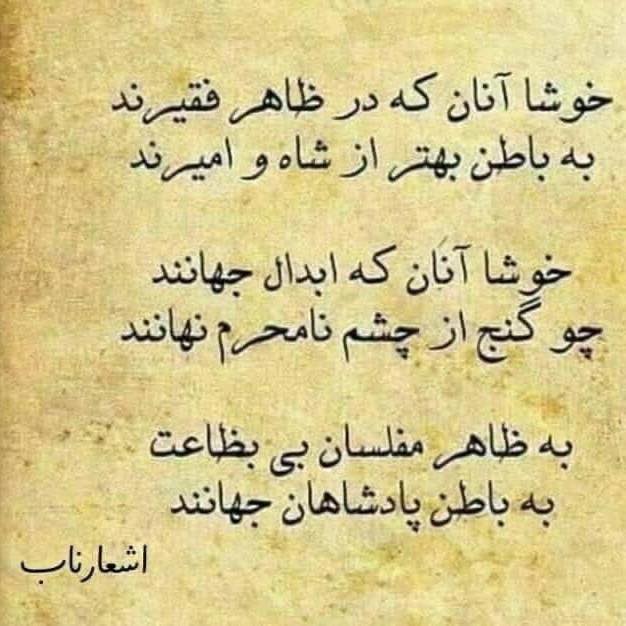 خوشا آنان که در ظاهر فقیرند
به باطن بهتر از شاه و امیرند
خوشا آنان که ابدال جهانند
چو گنج از چشم نامحرم نهانند
به ظاهر مفلسان بی بظاعت
به باطن پادشاهان جهانند
اشعارناب